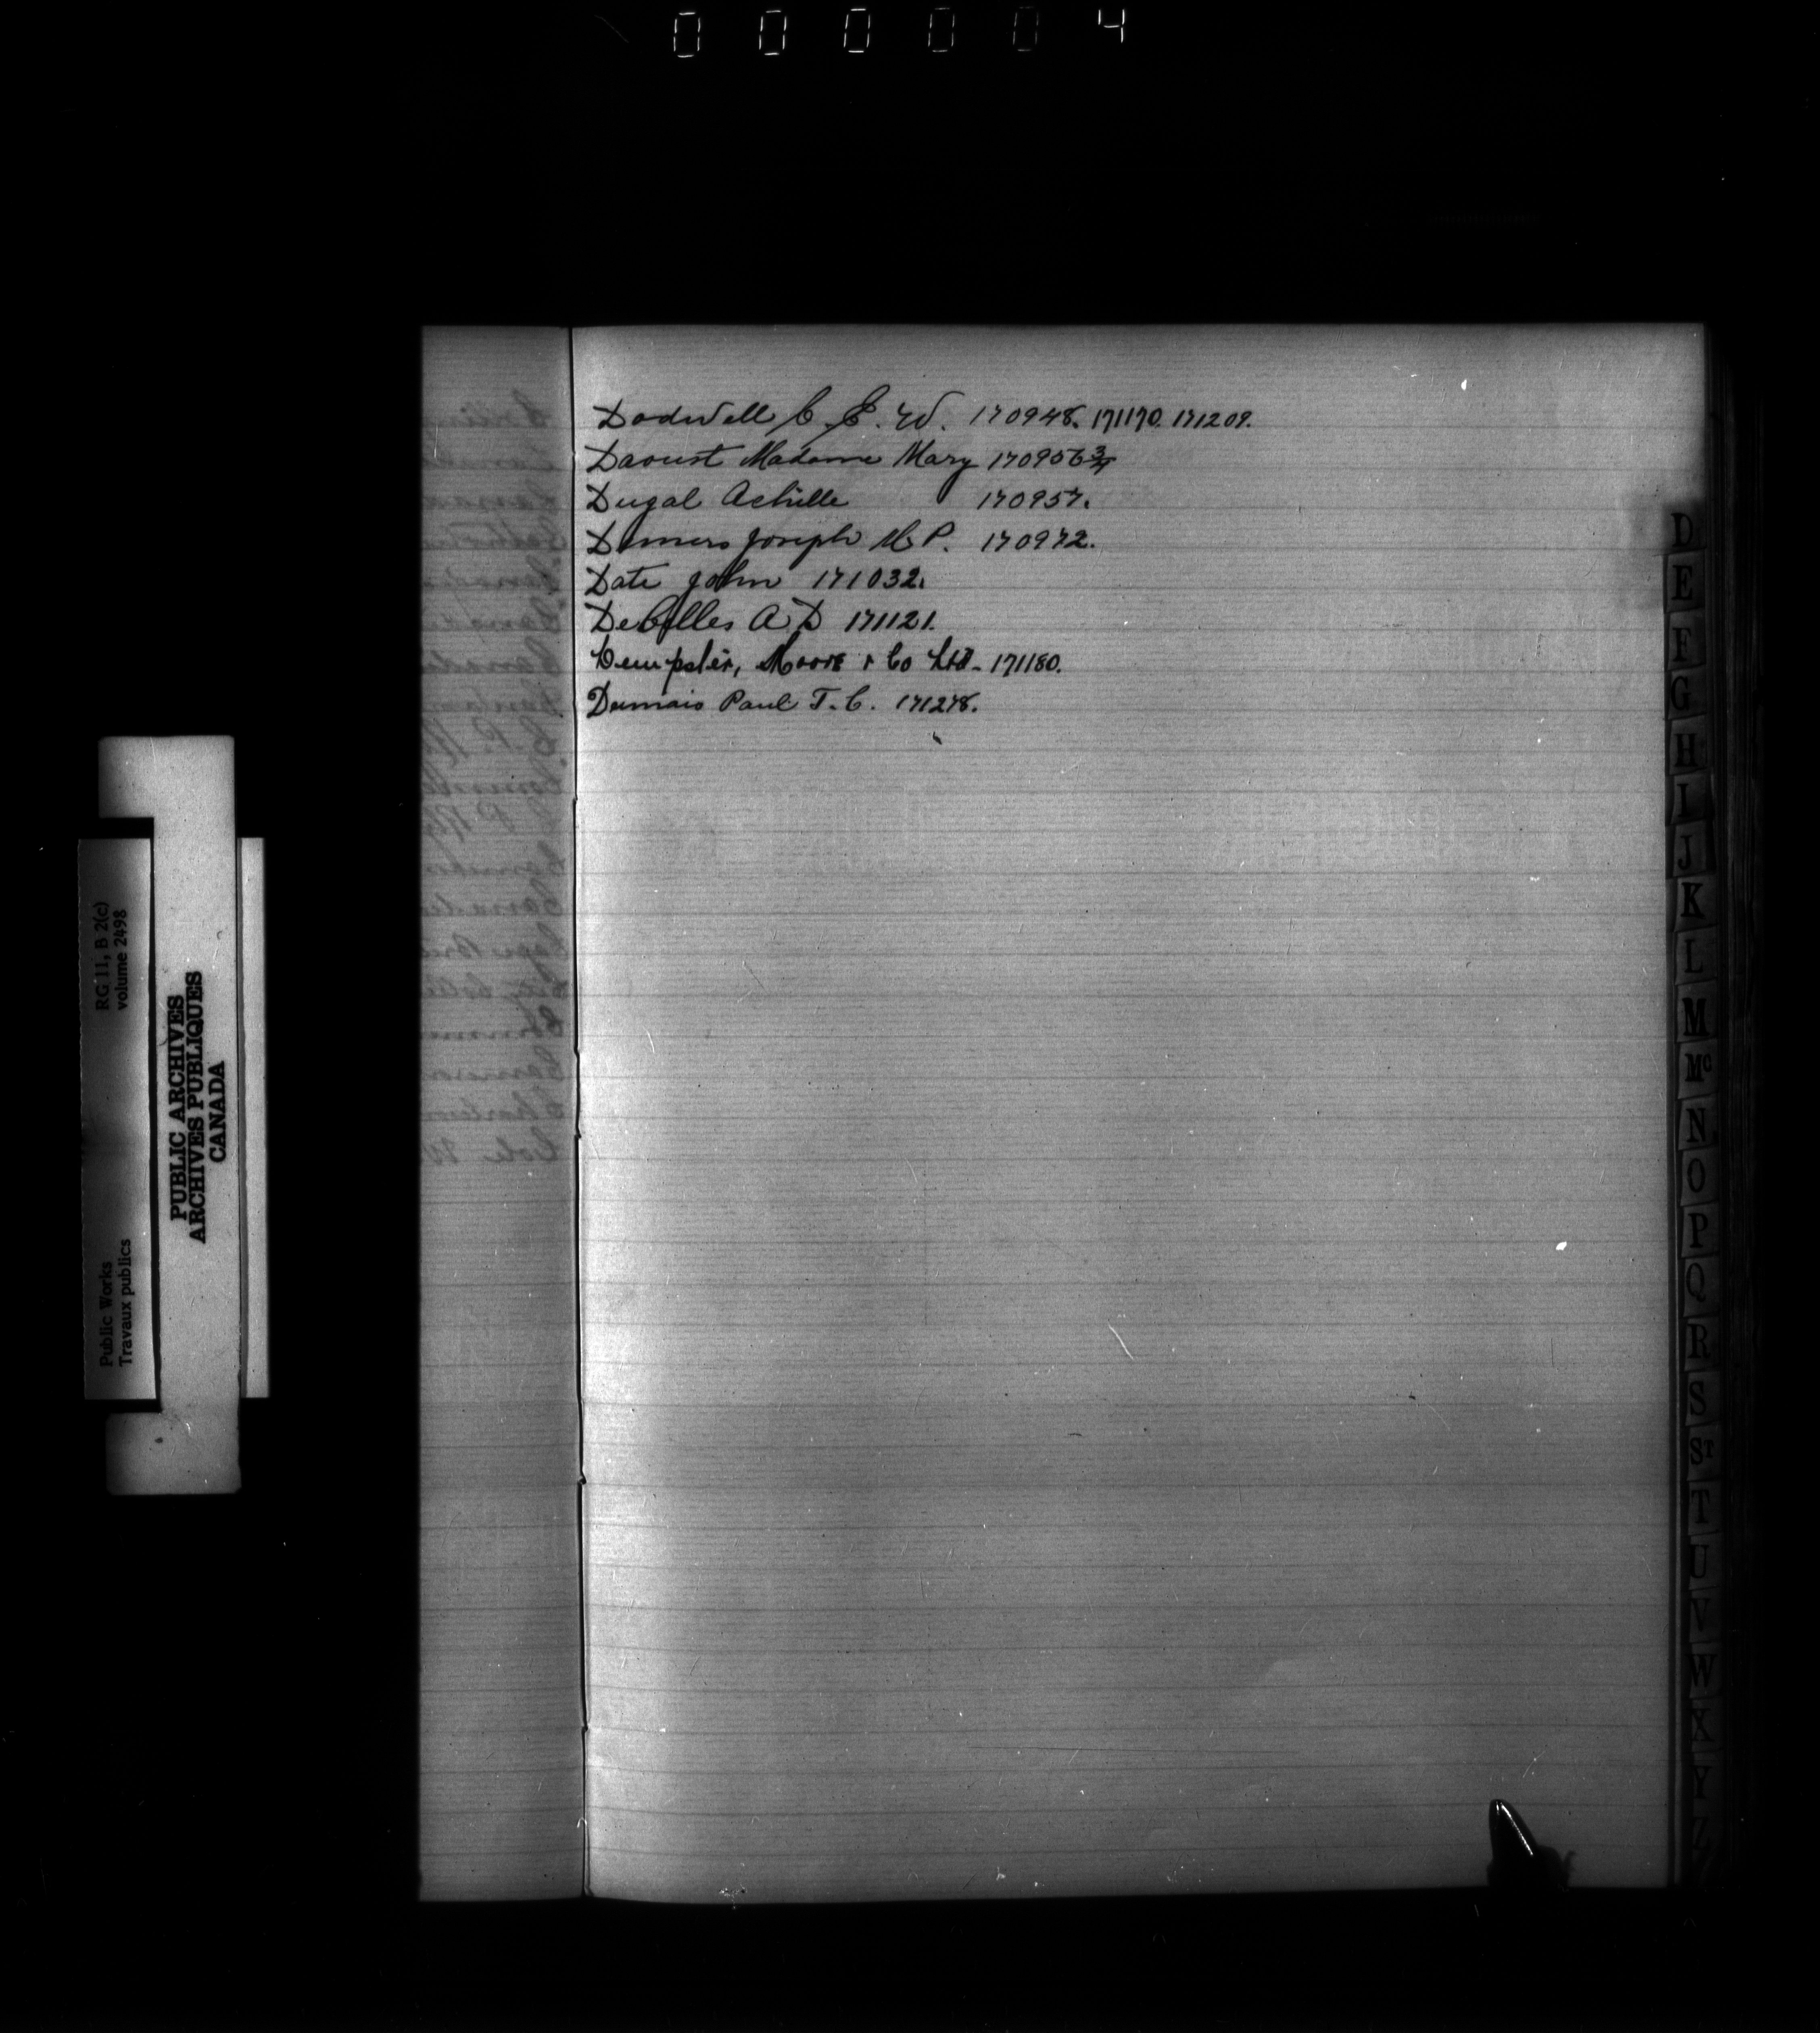 000004
Dodwell C. E. W. 170948. 171170. 171209.
Daoust Madame Mary 170956 3/4
Dugal Achille 170957.
Demers Joseph M.P. 170972.
Date John 171032.
DeCelles A D 171121.
Dempster, Moore & Co Ltd - 171180.
Dumais Paul T. C. 171278.
D
E
F
G
H
I
J
K
L
M
Mc
N
O
P
Q
R
S
ST
T
U
V
W
X
Y
Z
RG 11, B 2(c)
volume 2498
Public Works
Travaux publics
PUBLIC ARCHIVES
ARCHIVES PUBLIQUES
CANADA